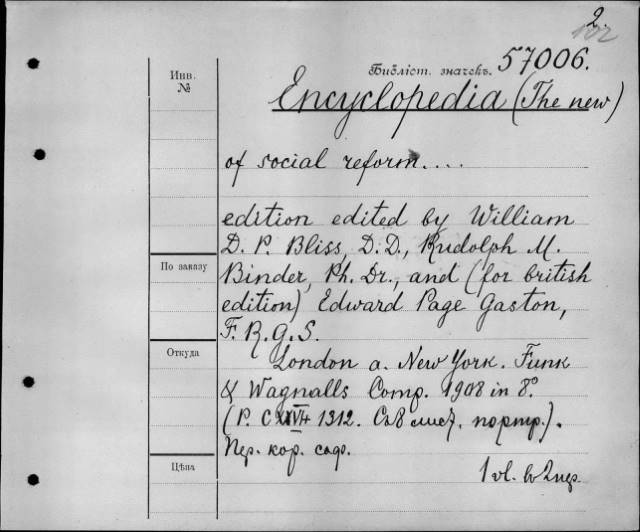 2.
102
Инв.
№
Библіот. значекъ. 57006.
Encyclopedia (The new)
of social reform....
edition edited by William
D. P. Bliss, D. D., Rudolph M.
По заказу
Binder, Ph. Dr., and (for british
edition) Edward Page Gaston,
F. R. G. S.
Откуда
London a. New York. Funk
& Wagnalls Comp. 1908 in 8°
(P. 1312. портр.).
Пер. кор.
Цѣна
1 vl. в 2 пер.